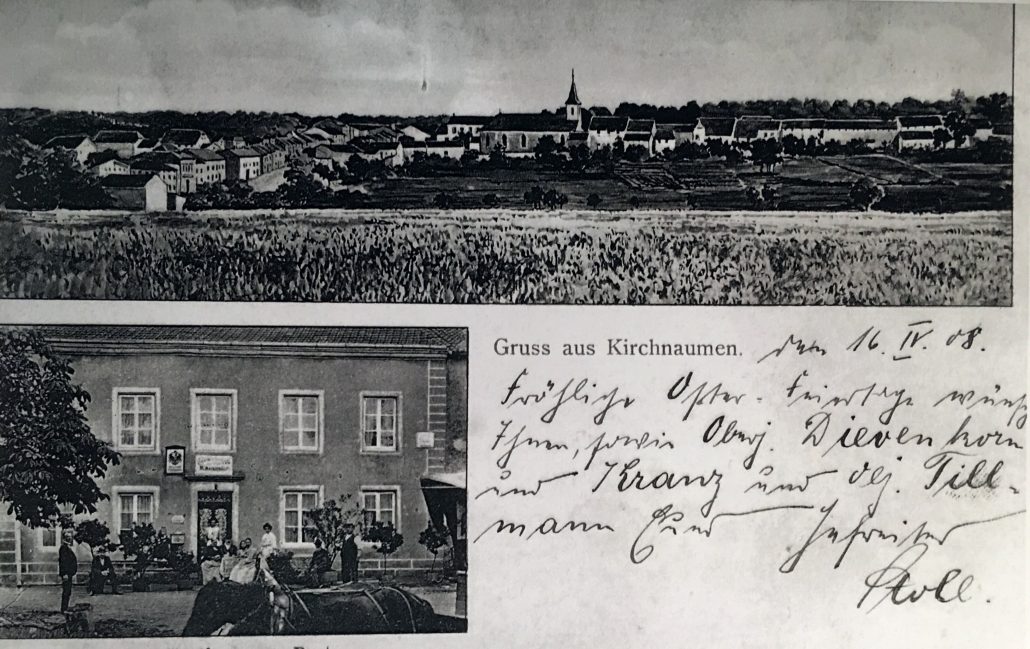 Gruss aus Kirchnaumen. den 16. IV. 08.
Fröhliche Oster-Feiertage wünscht
Ihnen, sowie Oberj. Dievenkorn
und Kranz und Obj. Till-
mann Euer Gefreiter
Stoll.